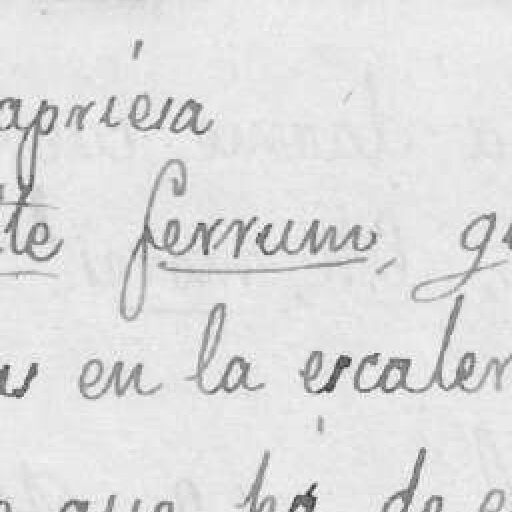 apriesa
te ferrum, qu
en la escaler
que ha de e